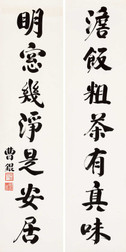 澹飯粗茶有真味
明窓幾淨是安居
曹錕